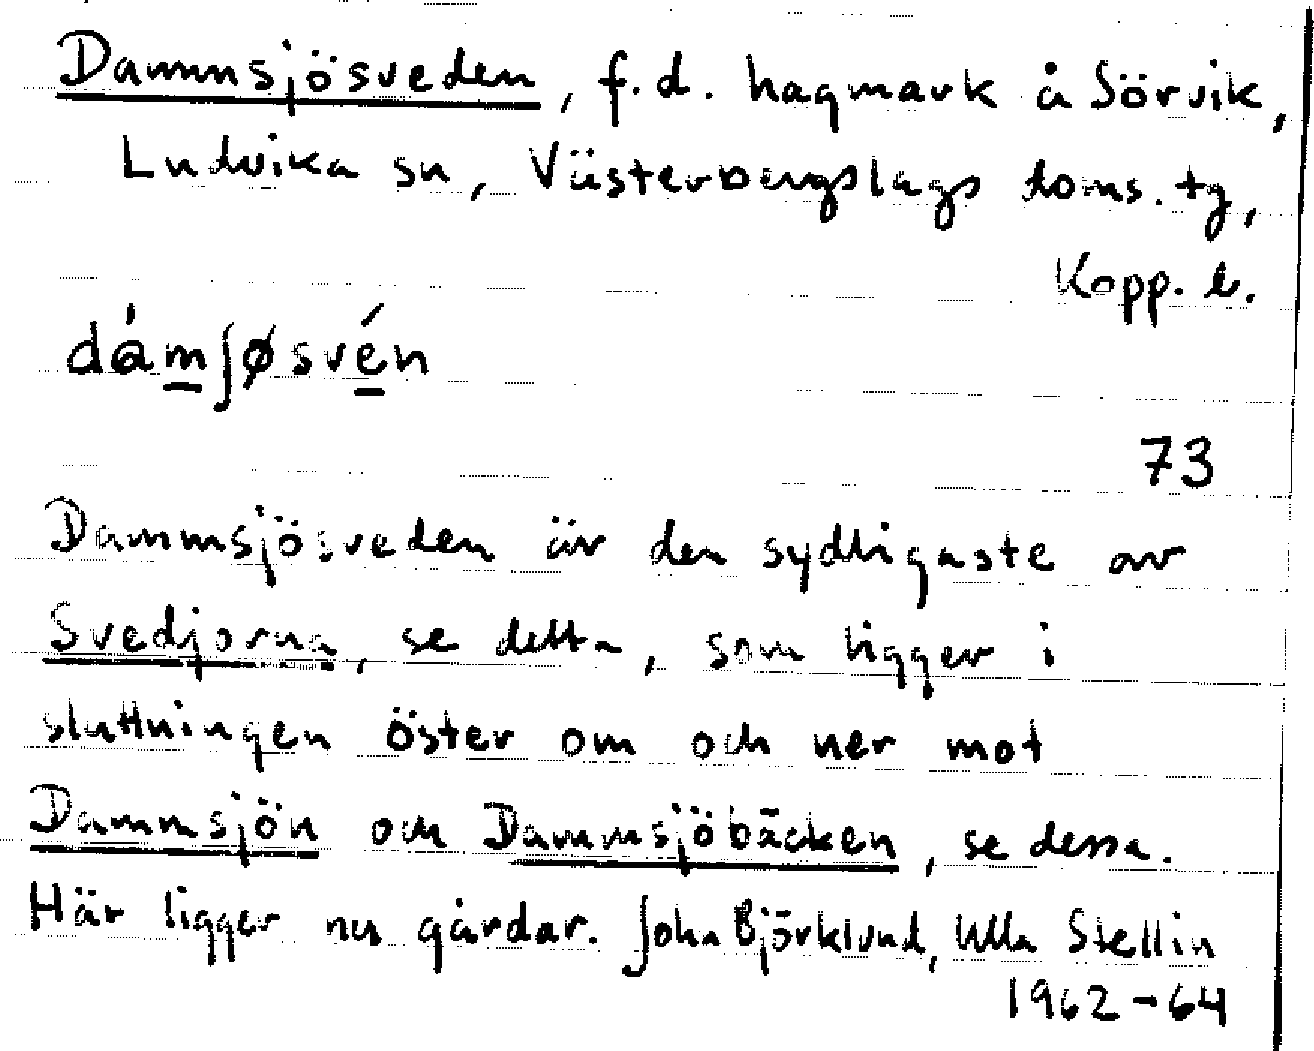 Dammsjösveden, f.d. hagmark å Sörvik,
Ludvika sn, Västerbergslags doms. tg,
Kopp. l.
dámʃøsvén
73
Dammsjösveden är den sydligaste av
Svedjorna, se detta, som ligger i
sluttningen öster om och ner mot
Dammsjön och Dammsjöbäcken, se dessa.
Här ligger nu gårdar. John Björklund, Ulla Stellin
1962-64